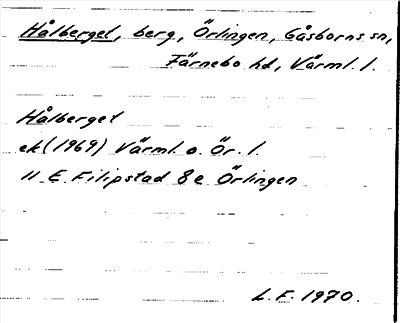 Hålberget, berg, Örlingen, Gåsborns sn,
Färnebo hd, Värml. l.
Hålberget
ek (1969) Värml. o. Ör. l.
11 E Filipstad 8 e Örlingen
L. F. 1970.